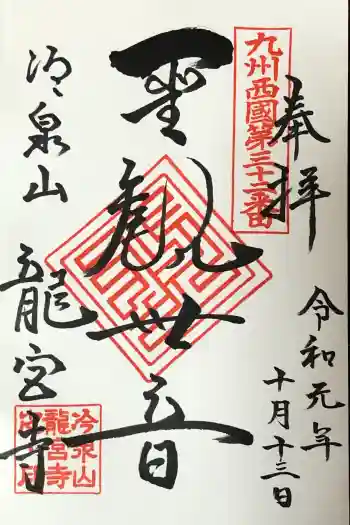 九州西國第三十二番
奉拝
令和元年
十月十三日
聖観世音
冷泉山
龍宮寺
冷泉山
龍宮寺